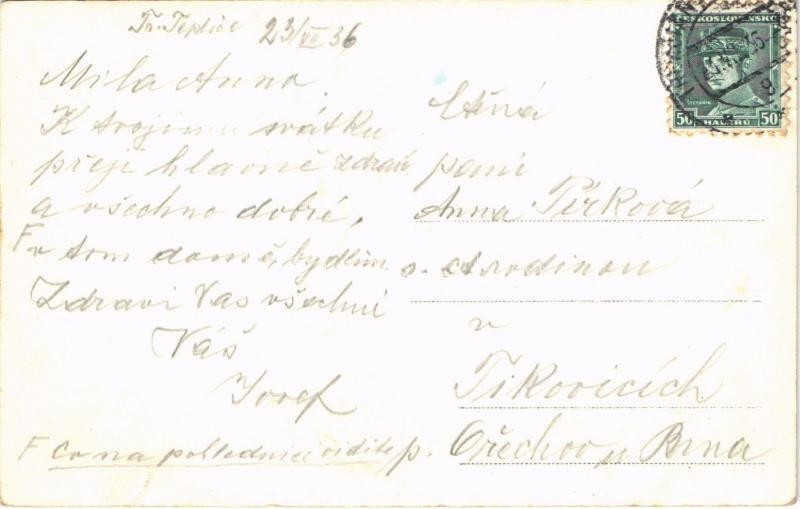 Tr. Teplice 23/VII 36
Milá Anno.
K tvojímu svátku
přeji hlavně zdraví
a všechno dobré,
F v tom domě, bydlím
Zdraví Vas všechni
Váš
Josef
F Co na pohlednici vidite
Ctěná
paní
Anna Pírková
s. ct. rodinou
v
Tikovicích
p. Ořechov u Brna
ČESKOSLOVENSKO
ŠTEFÁNIK
50 HALÉŘŮ 50